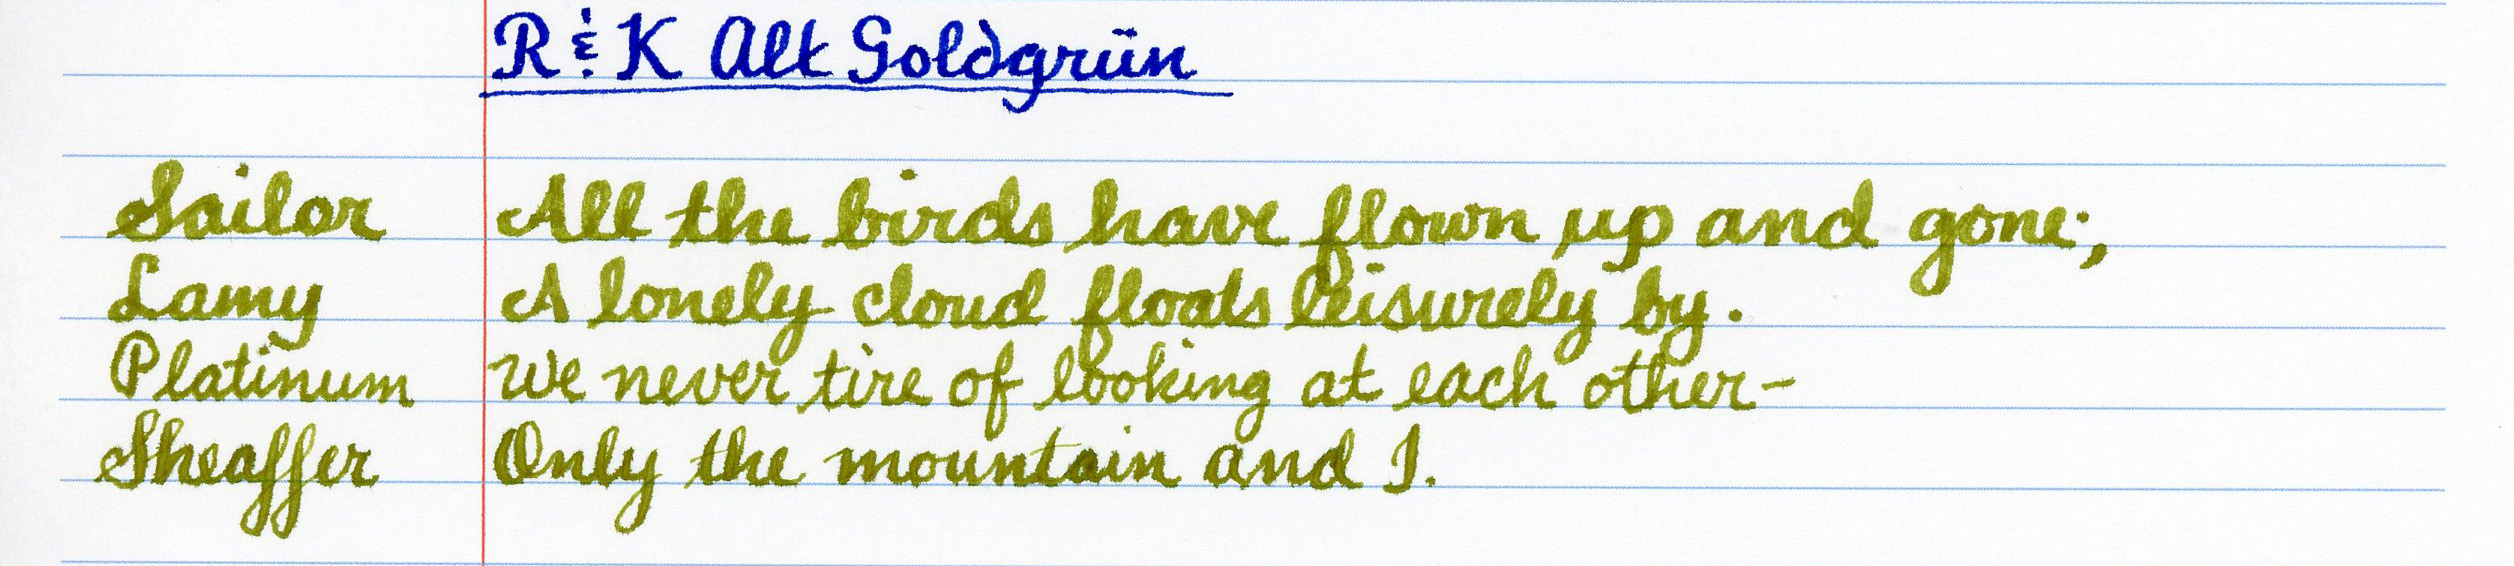 R & K Alt Goldgrün
Sailor All the birds have flown up and gone;
Lamy A lonely cloud floats leisurely by.
Platinum We never tire of looking at each other-
Sheaffer Only the mountain and I.